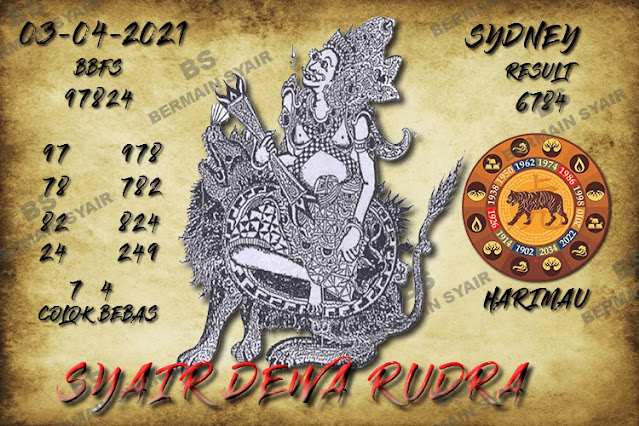 03-04-2021
BBFS
97824
97 978
78 782
82 824
24 249
7 4
COLOK BEBAS
SYDNEY
RESULT
6784
1962 1974 1986 1998 2010 2022 2034 1902 1914 1926 1938 1950
HARIMAU
SYAIR DEWA RUDRA
BS
BERMAIN SYAIR
BS
BERMAIN SYAIR
BERMAIN SYAIR
BERMAIN SYAIR
BERMAIN SYAIR